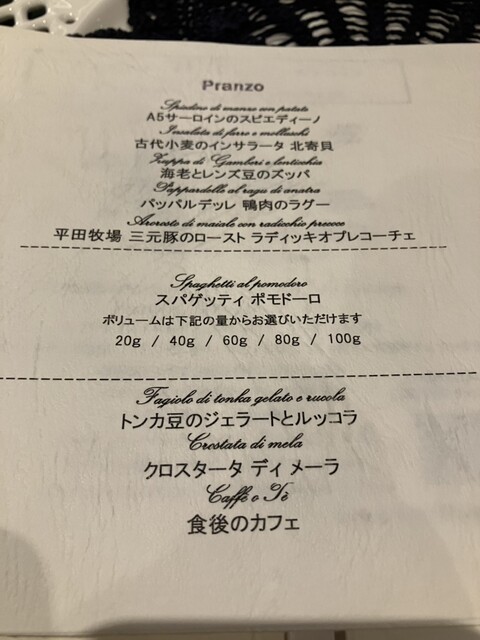 Pranzo
Spiedino di manzo con patate
A5サーロインのスピエディーノ
Insalata di farro e molluschi
古代小麦のインサラータ 北寄貝
Zuppa di Gamberi e lenticchia
海老とレンズ豆のズッパ
Pappardelle al ragu di anatra
パッパルデッレ 鴨肉のラグー
Arorosto di maiale con radicchio precoce
平田牧場 三元豚のロースト ラディッキオプレコーチェ
Spaghetti al pomodoro
スパゲッティ ポモドーロ
ボリュームは下記の量からお選びいただけます
20g / 40g / 60g / 80g / 100g
Fagiolo di tonka gelato e rucola
トンカ豆のジェラートとルッコラ
Crostata di mela
クロスタータ ディ メーラ
Caffè o Tè
食後のカフェ